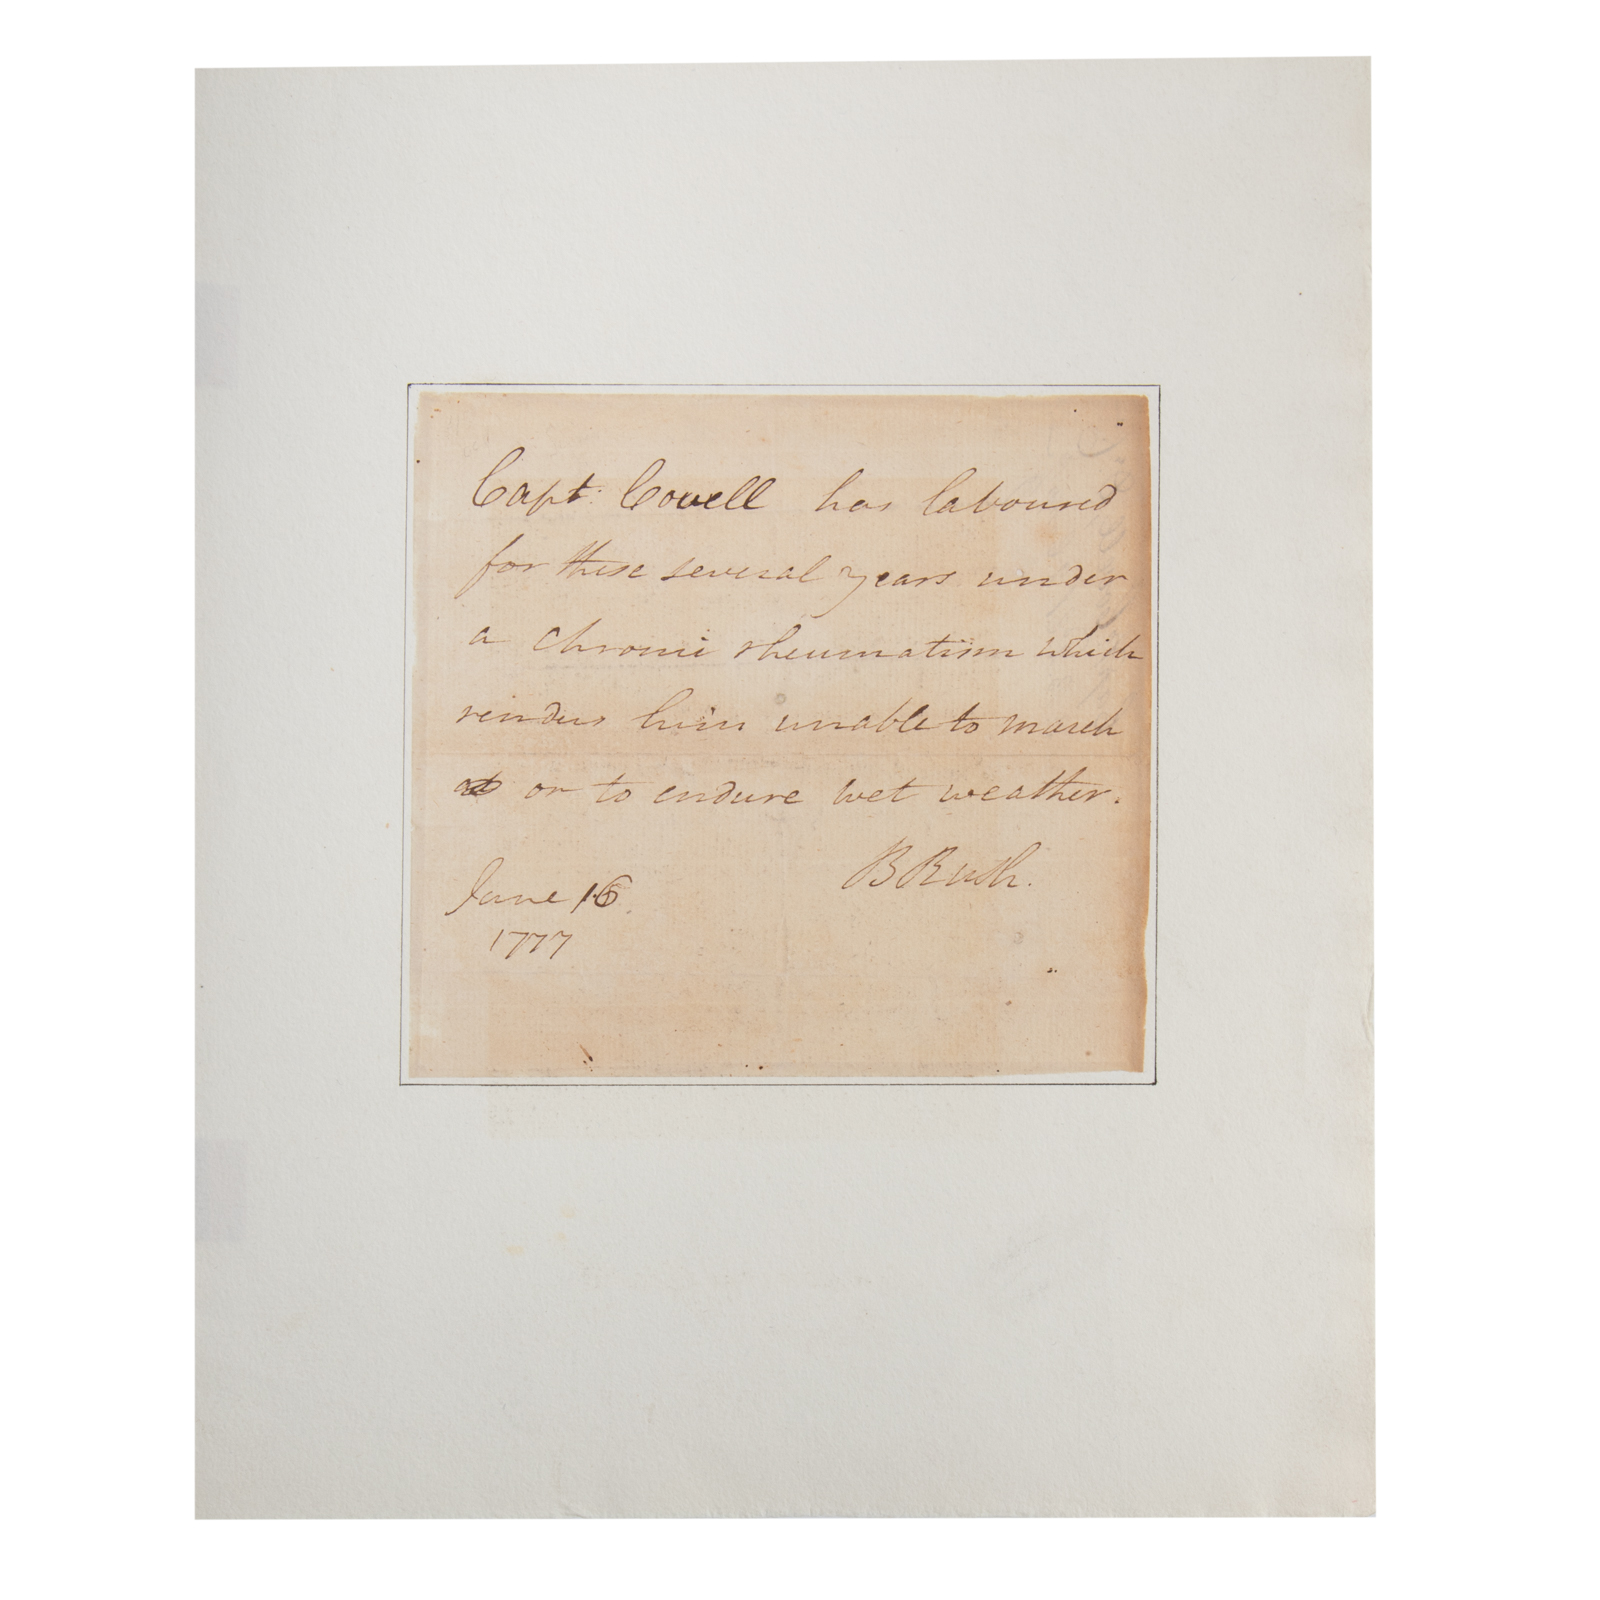 Capt: Covell has laboured
for these several years under
a chronic rheumatism which
renders him unable to march
or to endure wet weather.
B Rush.
June 16.
1777